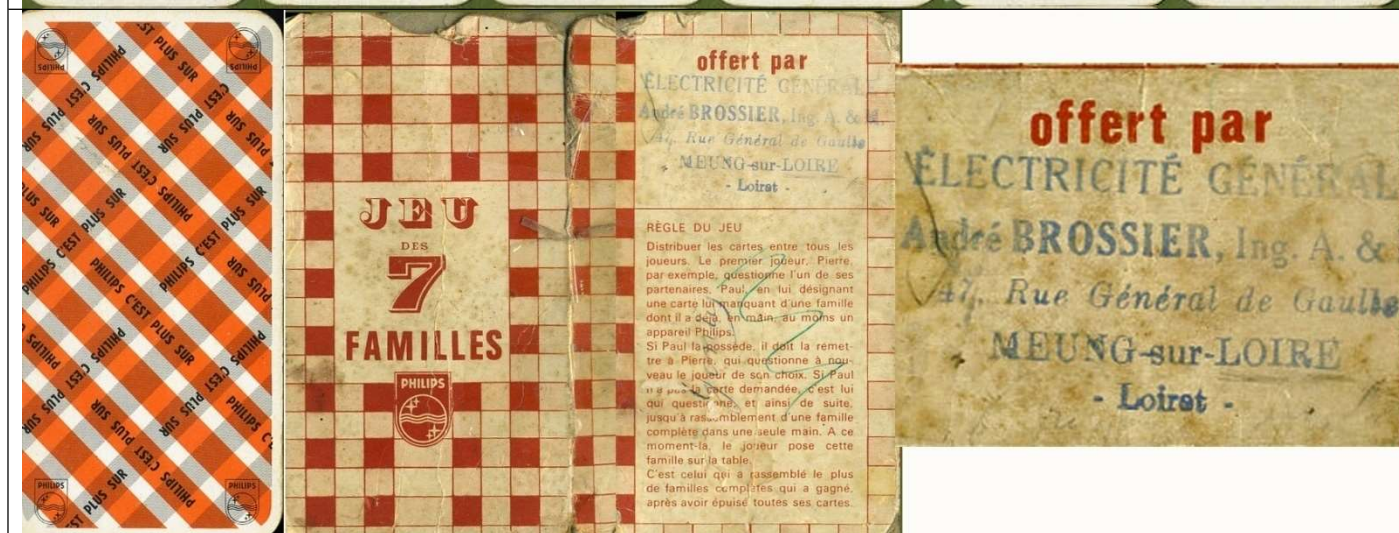 PHILIPS
PHILIPS
PHILIPS C'EST PLUS SUR
PHILIPS C'EST PLUS SUR
PHILIPS C'EST PLUS SUR
PHILIPS C'EST PLUS SUR
PHILIPS
PHILIPS
JEU
DES
7
FAMILLES
PHILIPS
offert par
ÉLECTRICITÉ GÉNÉRAL
André BROSSIER, Ing. A. &
47, Rue Général de Gaulle
MEUNG-sur-LOIRE
- Loiret -
RÈGLE DU JEU
Distribuer les cartes entre tous les
joueurs. Le premier joueur, Pierre,
par exemple, questionne l'un de ses
partenaires, Paul, en lui désignant
une carte lui manquant d'une famille
dont il a déjà, en main, au moins un
appareil Philips.
Si Paul la possède, il doit la remet-
tre à Pierre, qui questionne à nou-
veau le joueur de son choix. Si Paul
n'a pas la carte demandée, c'est lui
qui questionne, et ainsi de suite,
jusqu'à rassemblement d'une famille
complète dans une seule main. A ce
moment-là, le joueur pose cette
famille sur la table.
C'est celui qui a rassemblé le plus
de familles complètes qui a gagné,
après avoir épuisé toutes ses cartes.
offert par
ÉLECTRICITÉ GÉNÉRAL
André BROSSIER, Ing. A. &
47, Rue Général de Gaulle
MEUNG-sur-LOIRE
- Loiret -